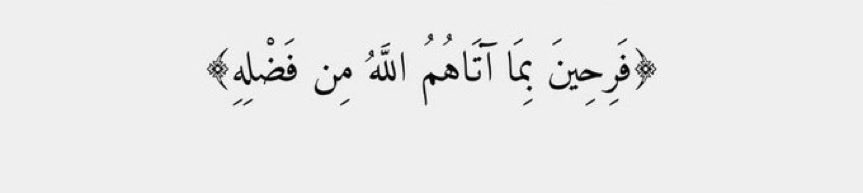 ﴿فَرِحِينَ بِمَا آتَاهُمُ اللَّهُ مِن فَضْلِهِ﴾